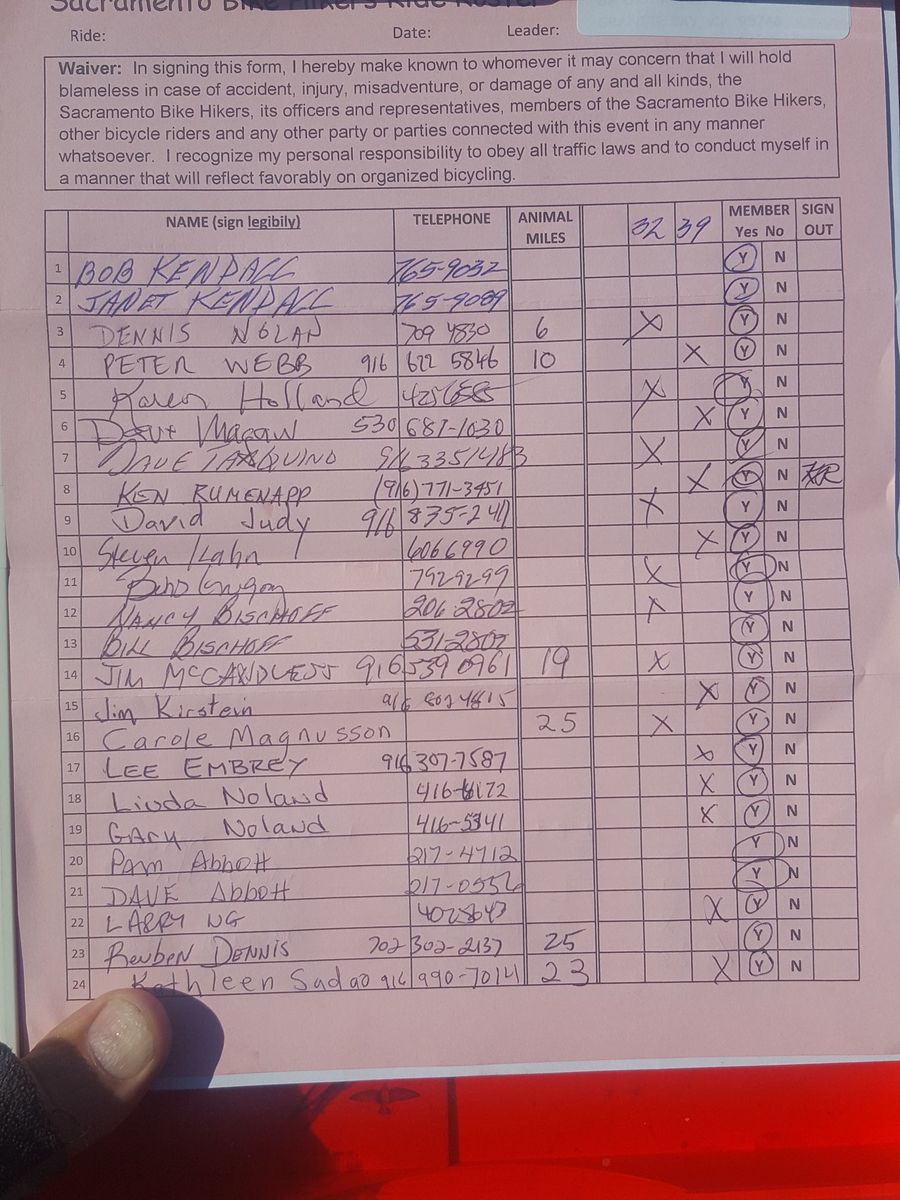 Sacramento Bike Hikers Ride Roster
Ride: Date: Leader:
Waiver: In signing this form, I hereby make known to whomever it may concern that I will hold
blameless in case of accident, injury, misadventure, or damage of any and all kinds, the
Sacramento Bike Hikers, its officers and representatives, members of the Sacramento Bike Hikers,
other bicycle riders and any other party or parties connected with this event in any manner
whatsoever. I recognize my personal responsibility to obey all traffic laws and to conduct myself in
a manner that will reflect favorably on organized bicycling.
NAME (sign legibily) TELEPHONE ANIMAL MILES 32 39 MEMBER Yes No SIGN OUT
1 BOB KENDALL 765-9032 Y N
2 JANET KENDALL 765-9089 Y N
3 DENNIS NOLAN 709 4830 6 X Y N
4 PETER WEBB 916 622 5846 10 X Y N
5 Karen Holland X Y N
6 Dave 530 687-1030 X Y N
7 DAVE TARQUINO 916 3351483 X Y N
8 KEN RUMENAPP (916)771-3451 X Y N KR
9 David Judy 916 X Y N
10 Steven Kahn 6066990 X Y N
11 7929299 X Y N
12 NANCY BISCHOFF 206 2802 X Y N
13 BILL BISCHOFF 531 2802 Y N
14 JIM MCCANDLESS 916 539 0961 19 X Y N
15 Jim Kirstein 916 X Y N
16 Carole Magnusson 25 X Y N
17 LEE EMBREY 916 307-7587 X Y N
18 Linda Noland X Y N
19 GARY Noland 416-5341 X Y N
20 Pam Abbott 217-4712 Y N
21 DAVE Abbott Y N
22 LARRY NG X Y N
23 Reuben DENNIS 702 302-2137 25 Y N
24 Kathleen Sadao 916 990-7014 23 X Y N